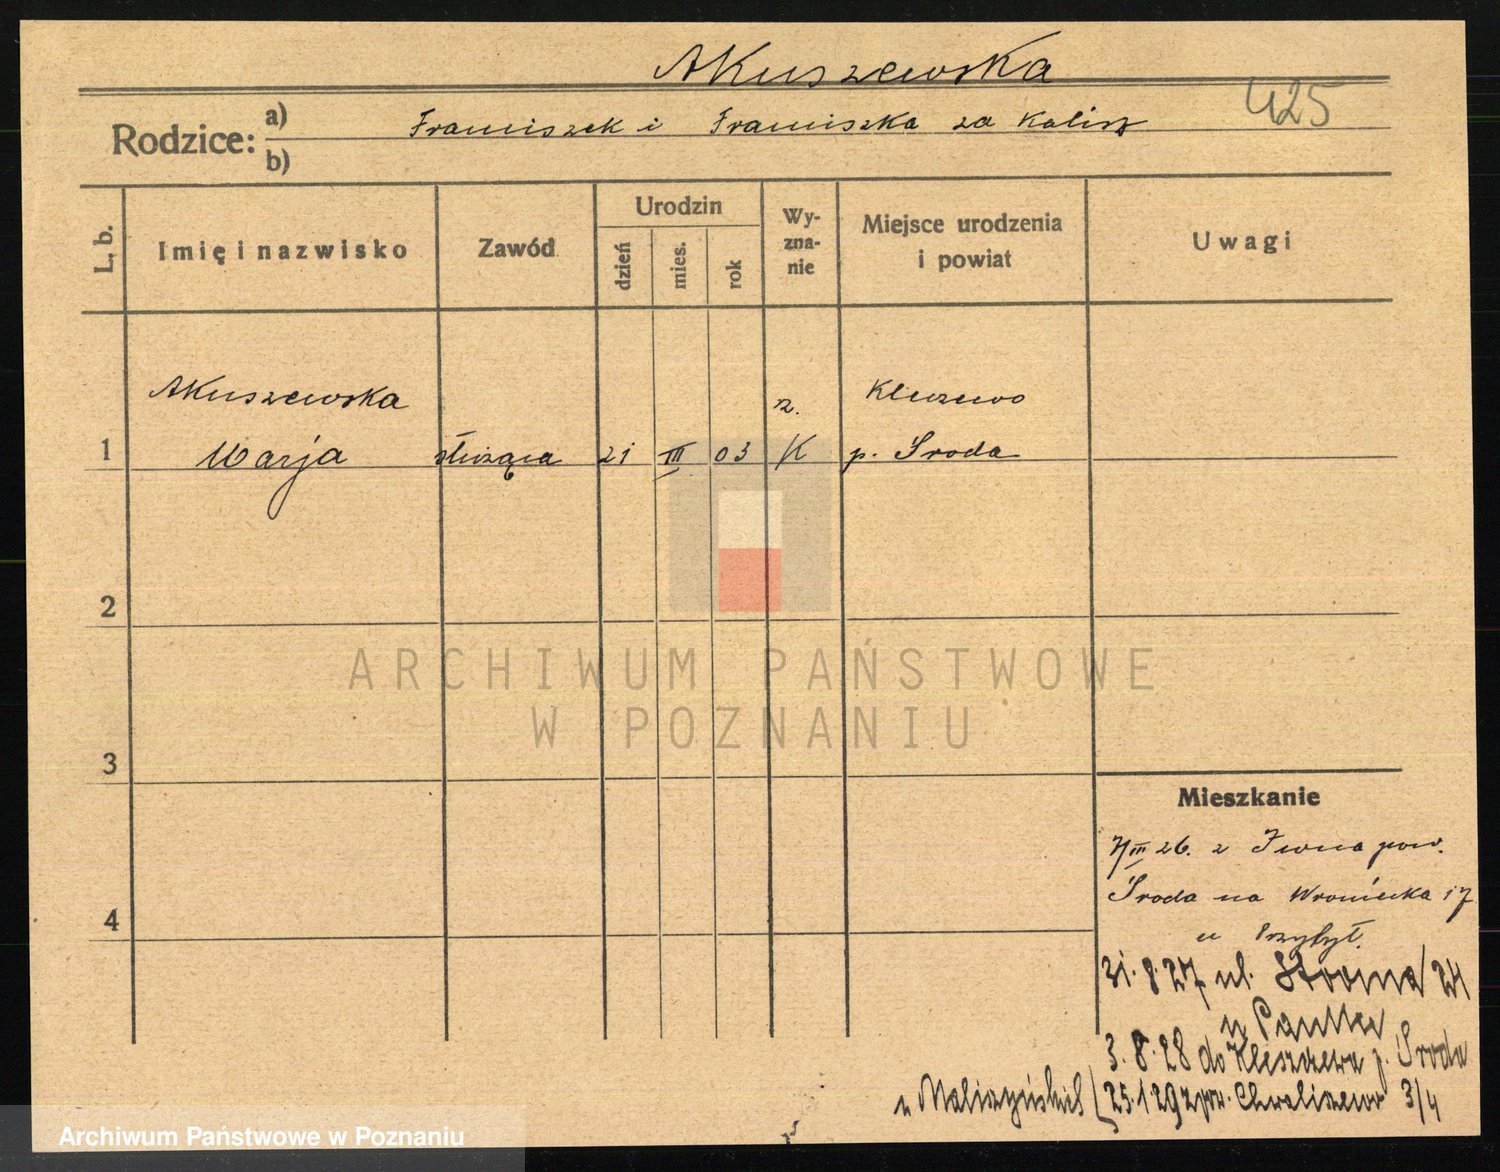 Akuszewska
425
Rodzice:
a) Franciszek i Franciszka za Kalisz
b)
L. b.
Imię i nazwisko
Zawód
Urodzin
dzień
mies.
rok
Wy-
zna-
nie
Miejsce urodzenia
i powiat
Uwagi
Akuszewska
Marja
1
służąca
21
III
03
rz.
K
Kleszewo
p. Środa
2
ARCHIWUM PAŃSTWOWE
W POZNANIU
3
Mieszkanie
7/III 26. z Iwna pow.
Środa na Wroniecka 17
u Przybył.
4
31.8.27 ul. Stroma 24
u
3.8.28 do Kleszczewa p. Środa
25.1.29 z pow. Chwaliszewo 3/4
u
Archiwum Państwowe w Poznaniu